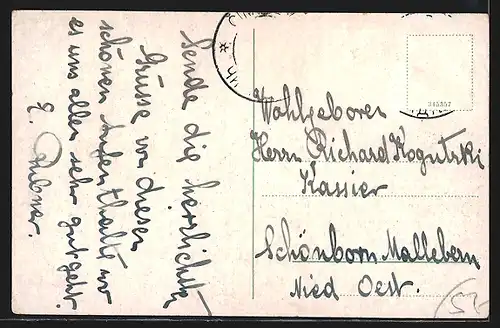 Sende die herrlichsten
Grüsse von diesen
schönen Aufenthalte wo
es uns allen sehr gut geht.
345357
Wohlgeboren
Herrn Richard Kogutski
Kassier
Schönborn Mallebern
Nied Oest.
25